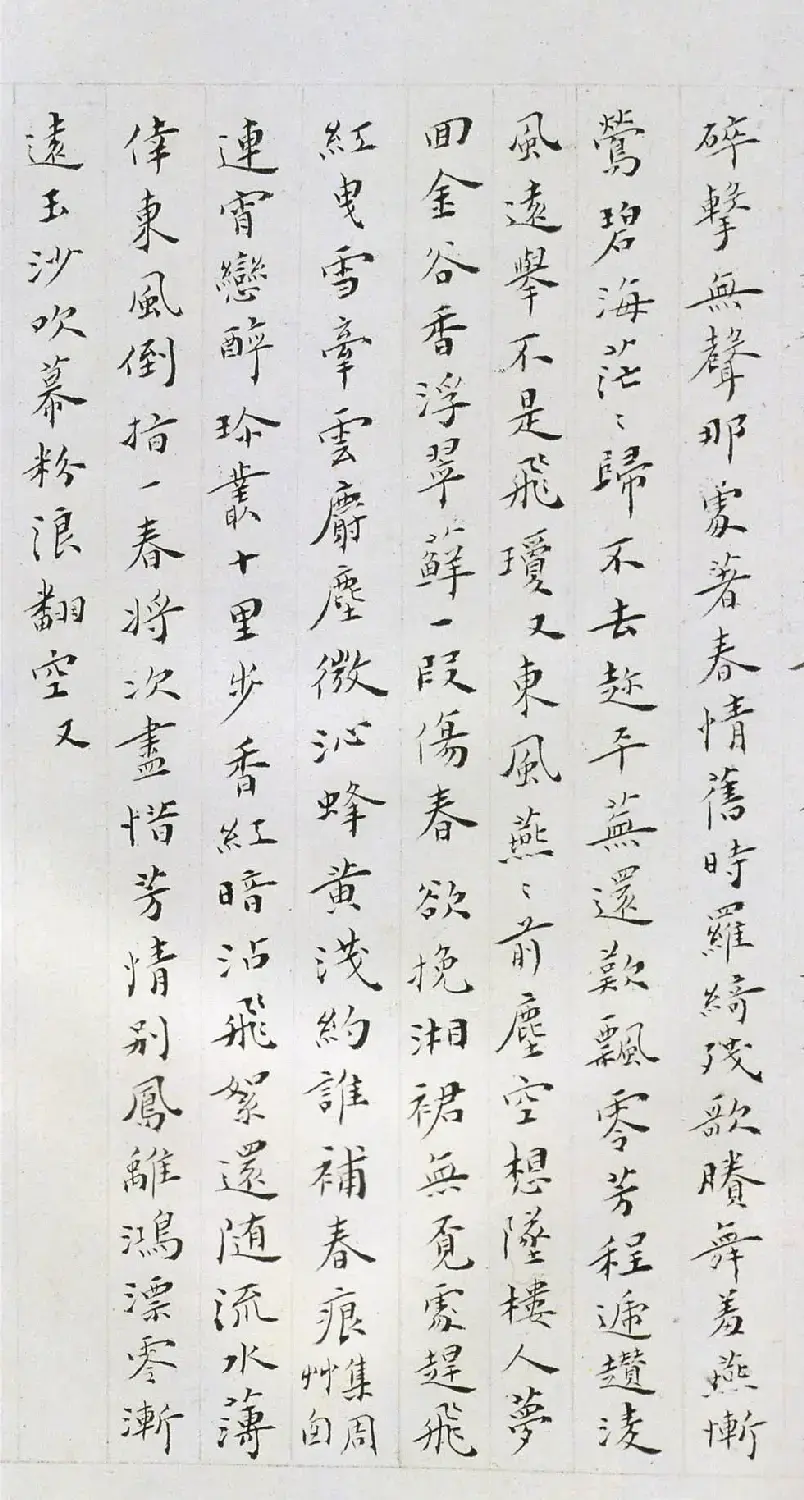 碎擊無聲那處著春情舊時羅綺殘歌賸舞羞燕慚
鶯碧海茫〻歸不去趁平蕪還歎飄零芳程遞趲淩
風遠舉不是飛瓊又東風燕〻前塵空想墜樓人夢
回金谷香浮翠蘚一段傷春欲挽湘裙無覓處趕飛
紅曳雪牽雲麝塵微沁蜂黃淺約誰補春痕集周艸囪
連宵戀醉珍叢十里步香紅暗沾飛絮還隨流水薄
倖東風倒指一春將次盡惜芳情別鳳離鴻漂零漸
遠玉沙吹幕粉浪翻空又